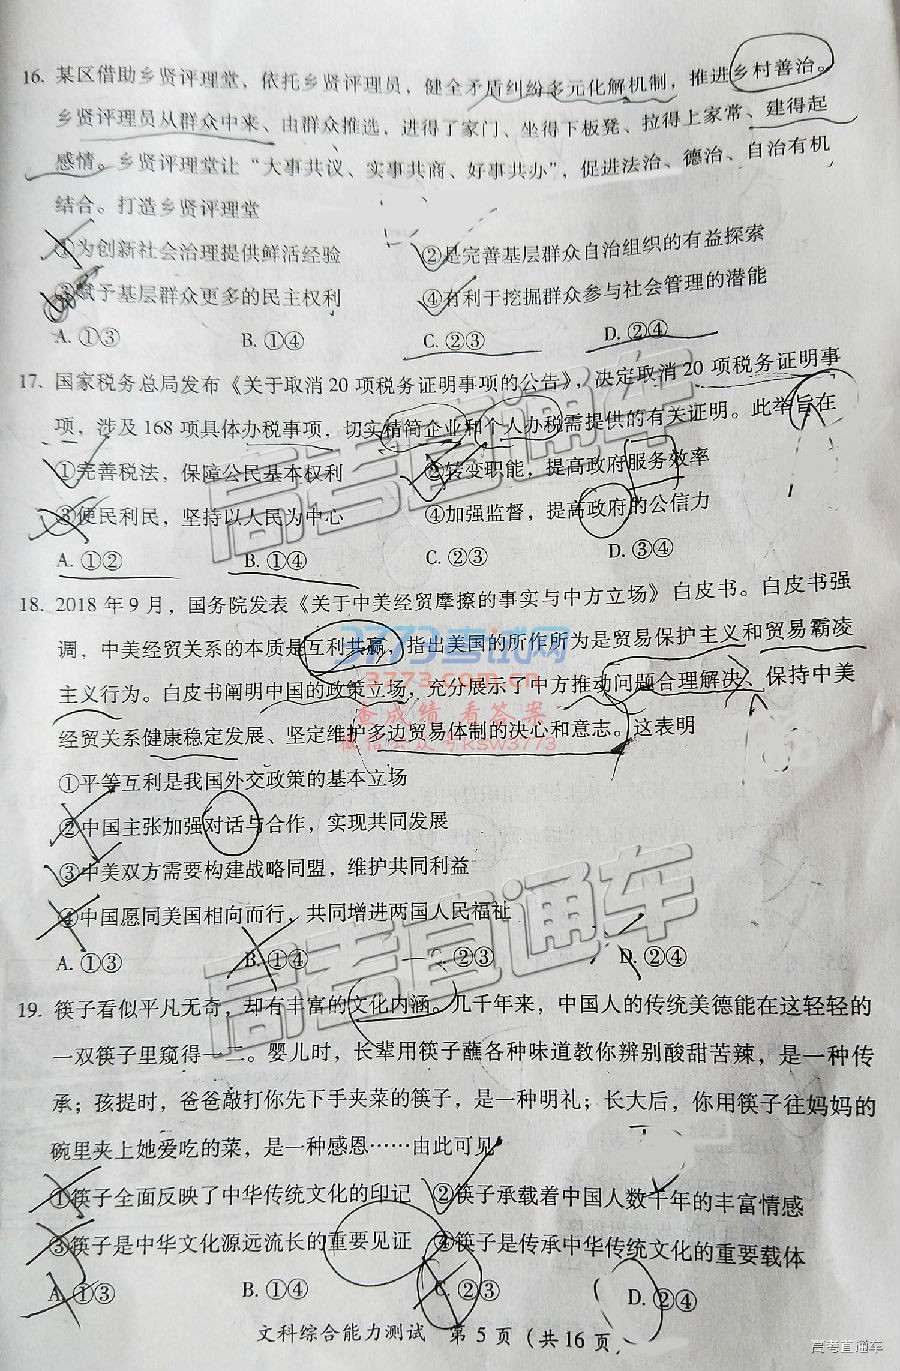 16. 某区借助乡贤评理堂、依托乡贤评理员，健全矛盾纠纷多元化解机制，推进乡村善治。
乡贤评理员从群众中来、由群众推选，进得了家门、坐得下板凳、拉得上家常、建得起
感情。乡贤评理堂让“大事共议、实事共商、好事共办”，促进法治、德治、自治有机
结合。打造乡贤评理堂
①为创新社会治理提供鲜活经验 ②是完善基层群众自治组织的有益探索
③赋予基层群众更多的民主权利 ④有利于挖掘群众参与社会管理的潜能
A. ①③ B. ①④ C. ②③ D. ②④
17. 国家税务总局发布《关于取消20项税务证明事项的公告》，决定取消20项税务证明事
项，涉及168项具体办税事项，切实精简企业和个人办税需提供的有关证明。此举旨在
①完善税法，保障公民基本权利 ②转变职能，提高政府服务效率
③便民利民，坚持以人民为中心 ④加强监督，提高政府的公信力
A. ①② B. ①④ C. ②③ D. ③④
18. 2018年9月，国务院发表《关于中美经贸摩擦的事实与中方立场》白皮书。白皮书强
调，中美经贸关系的本质是互利共赢，指出美国的所作所为是贸易保护主义和贸易霸凌
主义行为。白皮书阐明中国的政策立场，充分展示了中方推动问题合理解决、保持中美
经贸关系健康稳定发展、坚定维护多边贸易体制的决心和意志。这表明
①平等互利是我国外交政策的基本立场
②中国主张加强对话与合作，实现共同发展
③中美双方需要构建战略同盟，维护共同利益
④中国愿同美国相向而行，共同增进两国人民福祉
A. ①③ B. ①④ C. ②③ D. ②④
19. 筷子看似平凡无奇，却有丰富的文化内涵。几千年来，中国人的传统美德能在这轻轻的
一双筷子里窥得一二。婴儿时，长辈用筷子蘸各种味道教你辨别酸甜苦辣，是一种传
承；孩提时，爸爸敲打你先下手夹菜的筷子，是一种明礼；长大后，你用筷子往妈妈的
碗里夹上她爱吃的菜，是一种感恩……由此可见
①筷子全面反映了中华传统文化的印记 ②筷子承载着中国人数千年的丰富情感
③筷子是中华文化源远流长的重要见证 ④筷子是传承中华传统文化的重要载体
A. ①③ B. ①④ C. ②③ D. ②④
文科综合能力测试 第5页（共16页）
高考直通车
高考直通车
3773考试网
3773.com.cn
查成绩 看答案
微信公众号ksw3773
高考直通车